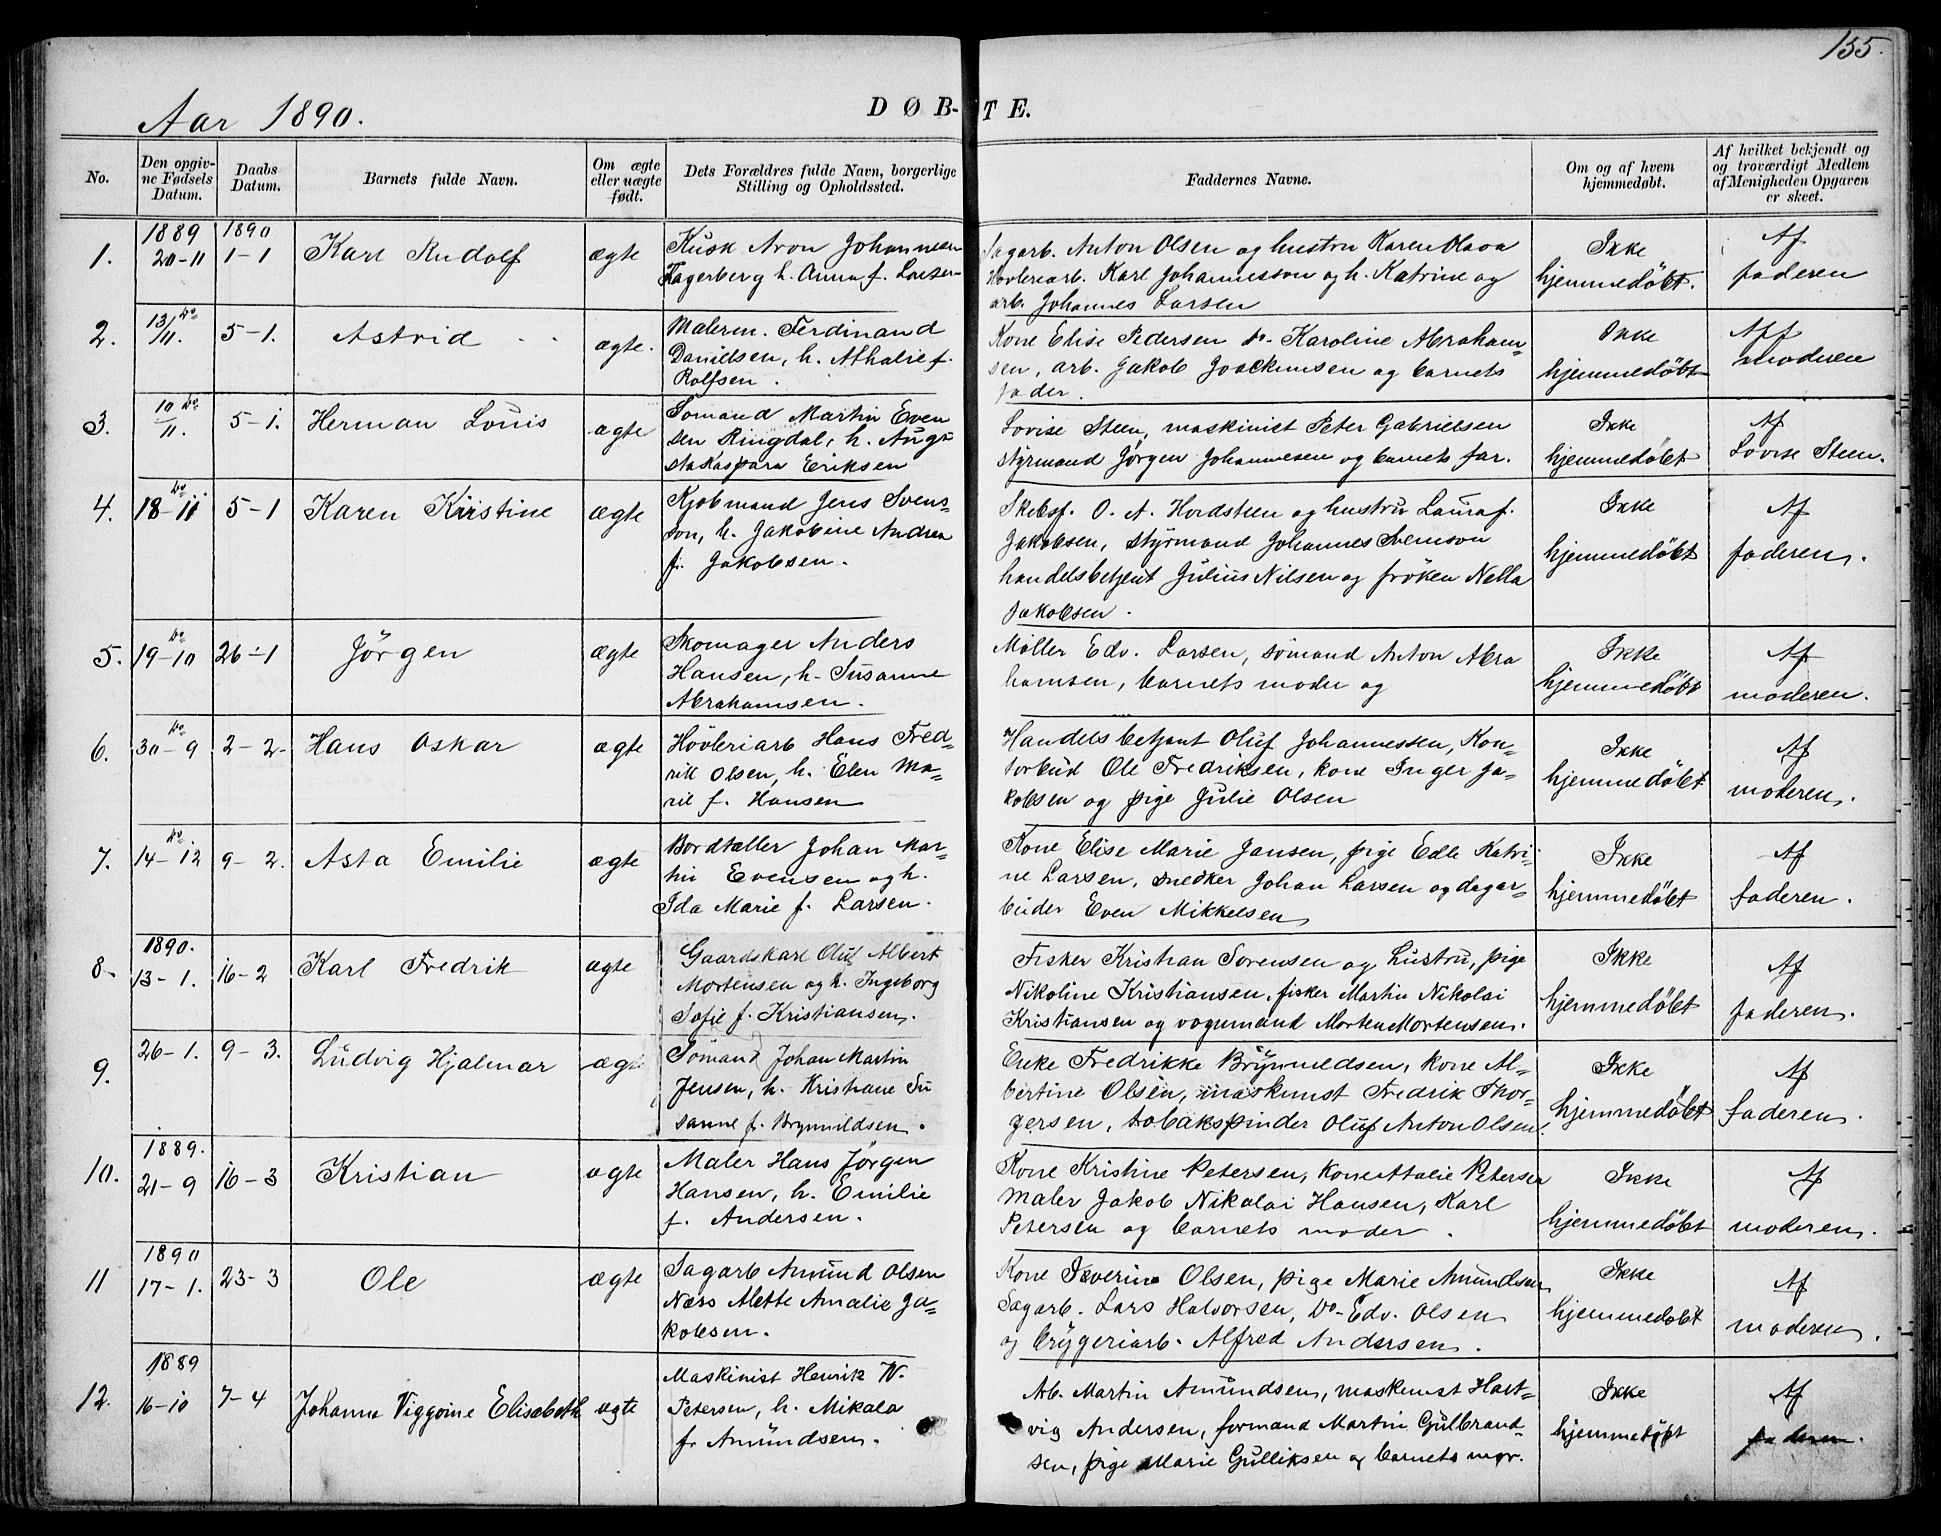 155.
Aar 1890.
DØB-TE.
No.
Den opgiv-
ne Fødsels
Datum.
Daabs
Datum.
Barnets fulde Navn.
Om ægte
eller uægte
født.
Dets Forældres fulde Navn, borgerlige
Stilling og Opholdssted.
Faddernes Navne.
Om og af hvem
hjemmedøbt.
Af hvilket bekjendt og
og troværdigt Medlem
af Menigheden Opgaven
er skeet.
1.
1889
20-11
1890
1-1
Karl Rudolf
ægte
Kusk Aron Johannesen
Fagerberg h. Anna f. Larsen
Sagarb. Anton Olsen og hustru Karen Olava
Høvleriarb. Karl Johannesson og h. Katrine og
arb. Johannes Larsen
Ikke
hjemmedøbt.
Af
faderen
2.
13/11. do
5-1.
Astrid
ægte.
Malerm. Ferdinand
Danielsen, h. Athalie f.
Rolfsen.
Kone Elise Pedersen do. Karoline Abraham-
sen, arb. Jakob Joackimsen og barnets
fader.
Ikke
hjemmedøbt
Af
moderen
3.
10/11. do
5-1.
Herman Louis
ægte
Sømand Martin Even
sen Ringdal, h. Augu
staKaspara Eriksen
Lovise Steen, maskinist Peter Gabrielsen
styrmand Jørgen Johannesen og barnets far.
Ikke
hjemmedøbt
Af
Lovise Steen.
4.
do
18-11
5-1
Karen Kristine
ægte
Kjøbmand Jens Sven-
son, h. Jakobine Andrea
f. Jakobsen.
Skibsf. O. A. Hordsteen og hustru Laura f.
Jakobsen, styrmand Johannes Svenson
handelsbetjent Julius Nilsen og frøken Nella
Jakobsen.
Ikke
hjemmedøbt
Af
faderen.
5.
do
19-10
26-1
Jörgen
ægte
Skomager Anders
Hansen, h. Susanne
Abrahamsen.
Møller Edv. Larsen, sømand Anton Abra
hamsen, barnets moder og
Ikke
hjemmedøbt
Af
moderen.
6.
do
30-9
2-2-
Hans Oskar
ægte
Høvleriarb Hans Fred-
rik Olsen, h. Elen Ma-
rie f. Hansen
Handelsbetjent Oluf Johannessen, Kon-
torbud Ole Fredriksen, kone Inger Ja-
kobsen og pige Julie Olsen
Ikke
hjemmedøbt
Af
moderen.
7.
do
14-12
9-2.
Asta Emilie
ægte
Bordtæller Johan Mar-
tin Evensen og h.
Ida Marie f. Larsen.
Kone Elise Marie Jansen, pige Edle Katri-
ne Larsen, snedker Johan Larsen og dagar-
beider Even Mikkelsen
Ikke
hjemmedøbt
Af
faderen.
8-
1890.
13-1.
16-2
Karl Fredrik
ægte
Gaardskarl Oluf Albert
Mortensen og h. Ingeborg
Sofie f. Kristiansen.
Fisker Kristian Sorensen og hustru, pige
Nikoline Kristiansen, fisker Martin Nikolai
Kristiansen og vognmand Morten Mortensen.
Ikke
hjemmedøbt
Af
faderen.
9.
26-1.
9-3.
Ludvig Hjalmar
ægte
Sømand Johan Martin
Jensen, h. Kristiane Su
sanne f. Brynnildsen.
Enke Fredrikke Brynnildsen, kone Al-
bertine Olsen, maskinist Fredrik Thor-
gersen, tobakspinder Oluf Anton Olsen.
Ikke
hjemmedøbt
Af
faderen.
10.
1889.
21-9
16-3
Kristian
ægte
Maler Hans Jørgen
Hansen, h. Emilie
f. Andersen.
Kone Kristine Petersen, kone Attalie Petersen
maler Jakob Nikolai Hansen, Karl
Petersen og barnets moder.
Ikke
hjemmedøbt
Af
moderen.
11
1890
17-1.
23-3
Ole
ægte
Sagarb Amund Olsen
Næss Alette Amalie Ja-
kobsen.
Kone Severine Olsen, pige Marie Amundsen
Sagarb. Lars Halvorsen, do- Edv. Olsen
og bryggeriarb. Alfred Andersen.
Ikke
hjemmedøbt
Af
moderen.
12.
1889
16-10
7-4
Johanne Viggoine Elisabeth
ægte
Maskinist Henrik W.
Petersen, h. Mikala
f. Amundsen.
Arb. Martin Amundsen, maskinist Hart-
vig Andersen, formand Martin Gulbrand-
sen, pige Marie Gulliksen og barnets mor.
Ikke
hjemmedøbt
Af
faderen.